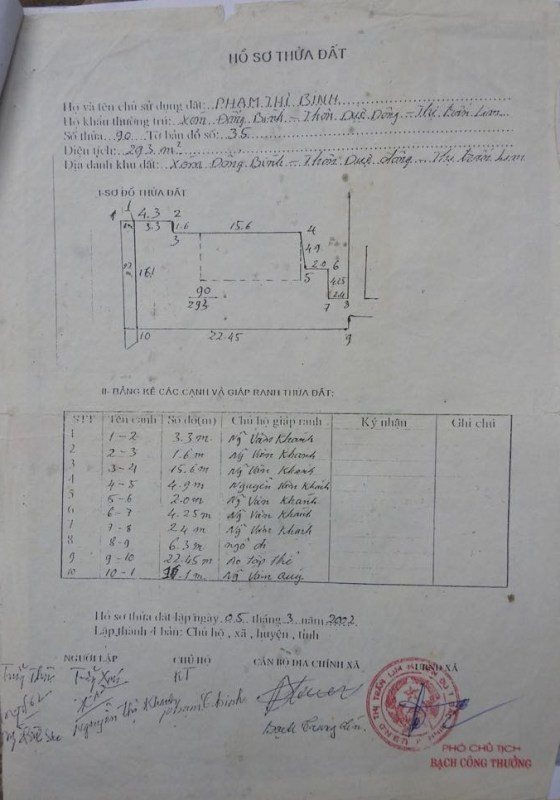 HỒ SƠ THỬA ĐẤT
Họ và tên chủ sử dụng đất: PHẠM THỊ BINH
Hộ khẩu thường trú: Xóm Đồng Bình - Thôn Duệ Đông - Thị trấn Lim
Số thửa: 90 Tờ bản đồ số: 35
Diện tích: 293 m²
Địa danh khu đất: Xóm Đồng Bình - Thôn Duệ Đông - Thị trấn Lim
I-SƠ ĐỒ THỬA ĐẤT
1 4.3 2
3.3 1.6 15.6 4
3
4.9
2.0 6
5
16.1 4.25
90 2.4
293 7 8
10 22.45 9
II- BẢNG KÊ CÁC CẠNH VÀ GIÁP RANH THỬA ĐẤT:
STT Tên cạnh Số đo(m) Chủ hộ giáp ranh Ký nhận Ghi chú
1 1-2 3.3 m Ng Văn Khanh
2 2-3 1.6 m Ng Văn Khanh
3 3-4 15.6 m Ng Văn Khanh
4 4-5 4.9 m Nguyễn Văn Khanh
5 5-6 2.0 m Ng Văn Khanh
6 6-7 4.25 m Ng Văn Khanh
7 7-8 2.4 m Ng Văn Khanh
8 8-9 6.3 m ngõ đi
9 9-10 22.45 m Ao tập thể
10 10-1 16.1 m Ng Văn Quý
Hồ sơ thửa đất lập ngày 05 tháng 3 năm 2002
Lập thành 4 bản: Chủ hộ, xã, huyện, tỉnh
NGƯỜI LẬP CHỦ HỘ CÁN BỘ ĐỊA CHÍNH XÃ UBND XÃ
KT
Bạch Trung
PHÓ CHỦ TỊCH
BẠCH CÔNG THƯỞNG